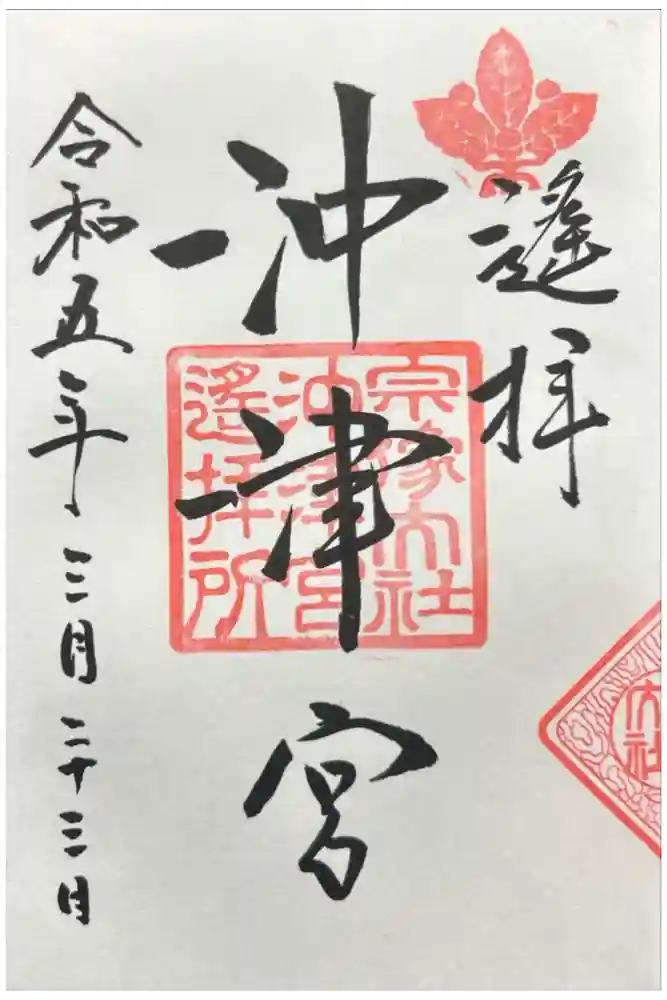 遙拝
沖津宮
宗像大社
沖津宮
遙拝所
令和五年三月二十三日
大社